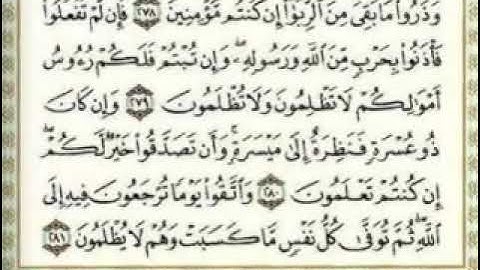 وَذَرُوا۟ مَا بَقِىَ مِنَ ٱلرِّبَوٰٓا۟ إِن كُنتُم مُّؤْمِنِينَ ٢٧٨ فَإِن لَّمْ تَفْعَلُوا۟
فَأْذَنُوا۟ بِحَرْبٍ مِّنَ ٱللَّهِ وَرَسُولِهِۦ ۖ وَإِن تُبْتُمْ فَلَكُمْ رُءُوسُ
أَمْوَٰلِكُمْ لَا تَظْلِمُونَ وَلَا تُظْلَمُونَ ٢٧٩ وَإِن كَانَ
ذُو عُسْرَةٍ فَنَظِرَةٌ إِلَىٰ مَيْسَرَةٍ ۚ وَأَن تَصَدَّقُوا۟ خَيْرٌ لَّكُمْ ۖ
إِن كُنتُمْ تَعْلَمُونَ ٢٨٠ وَٱتَّقُوا۟ يَوْمًا تُرْجَعُونَ فِيهِ إِلَى
ٱللَّهِ ۖ ثُمَّ تُوَفَّىٰ كُلُّ نَفْسٍ مَّا كَسَبَتْ وَهُمْ لَا يُظْلَمُونَ ٢٨١